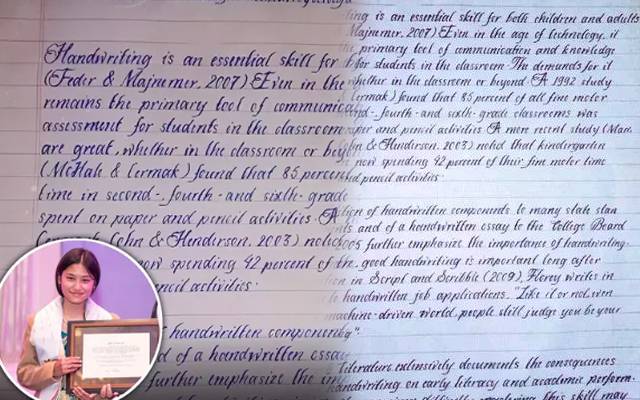 Handwriting is an essential skill for
(Feder & Majnemer, 2007) Even in the
remains the primary tool of communica
assessment for students in the classroom
are great, whether in the classroom or
(McHale & Cermak) found that 85 percent
time in second-, fourth- and sixth- grade
spent on paper and pencil activities. A
Cohn & Henderson, 2003) noted
now spending 42 percent of the
encil activities.
f handwritten componen
d of a handwritten essay
further emphasize the im
ting is an essential skill for both children and adults
Majnemer, 2007) Even in the age of technology, it
the primary tool of communication and knowledge
for students in the classroom The demands for it
whether in the classroom or beyond. A 1992 study
Cermak) found that 85 percent of all fine motor
ond-, fourth- and sixth- grade classrooms was
aper and pencil activities A more recent study (Marr
n & Henderson, 2003) noted that kindergarten
now spending 42 percent of their fine motor time
nd pencil activities.
tion of handwritten components to many state stan
ts and of a handwritten essay to the College Board
005 further emphasize the importance of handwriting.
good handwriting is important long after
in Script and Scribble (2009), Florey writes in
to handwritten job applications, "Like it or not, even
machine-driven world, people still judge you be your
ng".
Literature extensively documents the consequences
andwriting on early literacy and academic perform-
this skill may